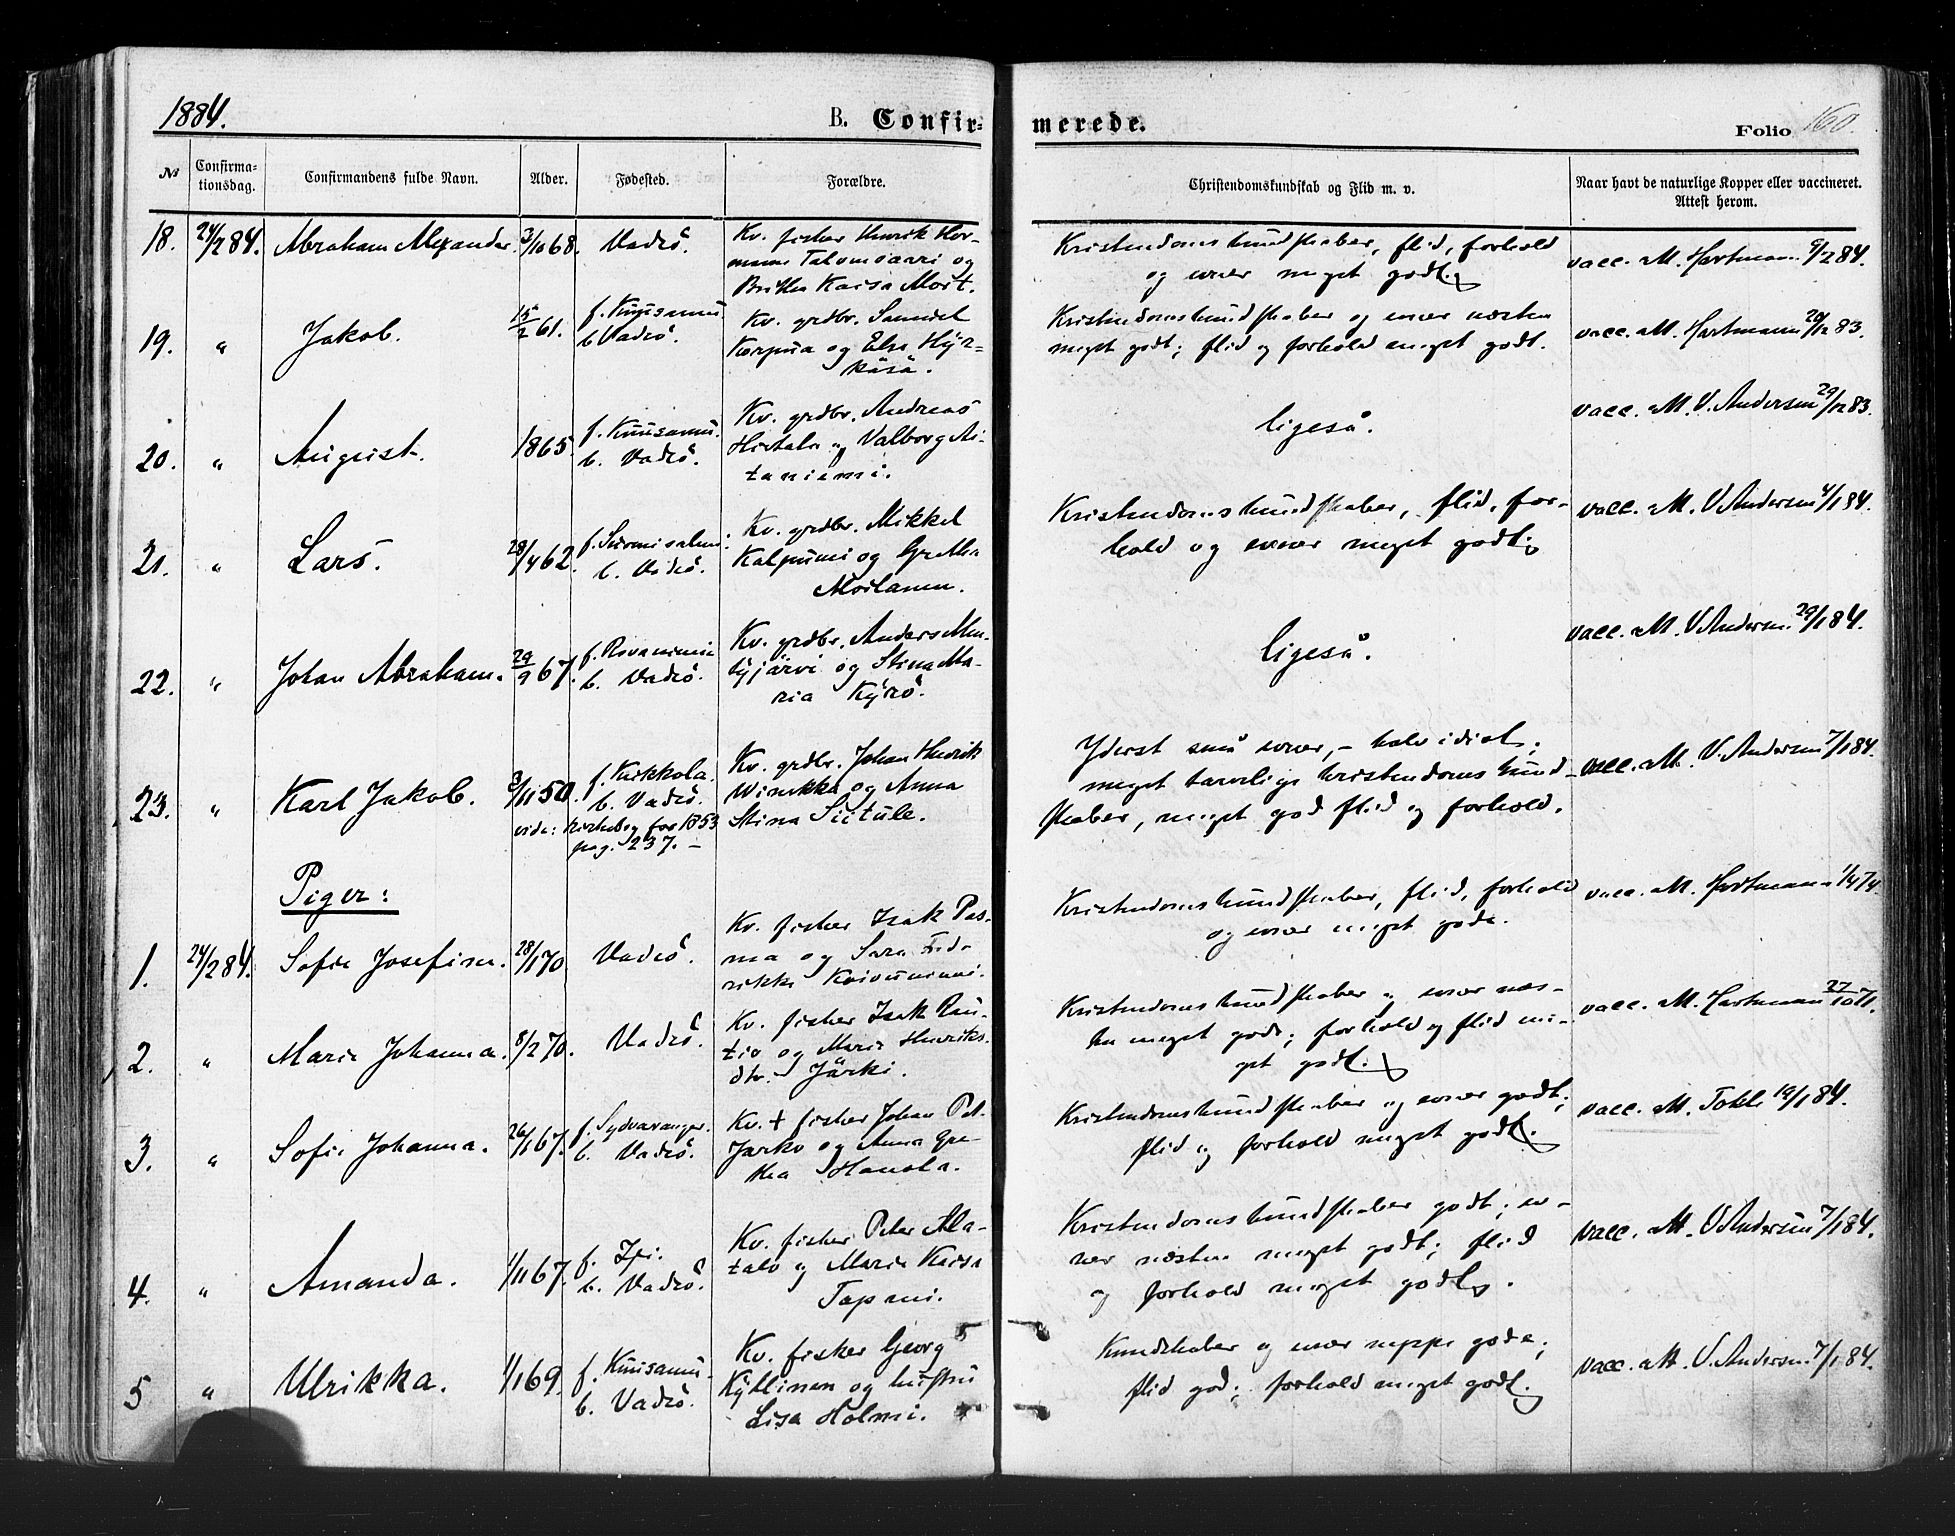 1884.
B. Confir-
merede.
Folio 160.
№
Confirma-
tionsdag.
Confirmandens fulde Navn.
Alder.
Fødested.
Forældre.
Christendomskundskab og Flid m. v.
Naar havt de naturlige Kopper eller vaccineret.
Attest herom.
18. 24/2 84. Abraham Alexander. 3/10 68. Vadsö.
Kv. fisker Henrik Her-
mann Talomaari og
Britha Kaisa Mort.
Kristendomskundskaber, flid, forhold
og evner meget godt.
vacc. A.M. Hartmann 9/2 84.
19. " Jakob. 15/2 61.
f. Kuusamu
b. Vadsö.
Kv. grdbr. Samuel
Korpua og Else Hyr-
käsä.
Kristendomskundskaber og evner næsten
meget godt; flid og forhold meget godt.
vacc. A.M. Hartmann 29/12 83.
20. " August. 1865.
f. Kuusamu.
b. Vadsö.
Kv. grdbr. Andreas
Hietala og Valborg Ai-
taniemi.
ligeså.
vacc. A.M. V. Andersen 29/12 83.
21. " Lars. 28/4 62.
f. Suomisalmi.
b. Vadsö.
Kv. grdbr. Mikkel
Kalpumi og Gretha
Moilanen.
Kristendomskundskaber, flid, for-
hold og evner meget godt.
vacc. A.M. V. Andersen 4/1 84.
22. " Johan Abraham. 29/9 67.
f. Rovaniemi
b. Vadsö.
Kv. grdbr. Anders Men-
tyjärvi og Stina Ma-
ria Kyrö.
ligeså.
vacc. A.M. V. Andersen 29/1 84.
23. " Karl Jakob. 3/11 50.
f. Kirkkola.
b. Vadsö.
vide: kirkebog for 1853
pag. 237. –
Kv. grdbr. Johan Henrik
Winikka og Anna
Stina Siitule.
Yderst små evner, – halv idiot;
meget tarvelige kristendomskund-
skaber, meget god flid og forhold.
vacc. A.M. V. Andersen 7/1 84.
Piger:
1. 24/2 84. Sofie Josefine. 28/1 70. Vadsö.
Kv. fisker Isak Pas-
ma og Sara Fred-
rikke Koivuniemi.
Kristendomskundskaber, flid, forhold
og evner meget gode.
vacc. A.M. Hartmann 1/4 74.
2. " Marie Johanna. 8/2 70. Vadsö.
Kv. fisker Isak Rau-
tio og Marie Henriks-
dtr. Järki.
Kristendomskundskaber og evner næs-
ten meget gode; forhold og flid me-
get godt.
vacc. A.M. Hartmann 27/10 71.
3. " Sofie Johanna. 26/1 67.
f. Sydvaranger.
b. Vadsö.
Kv. + fisker Johan Pet-
Jarko og Anna Gre-
tha Hanola.
Kristendomskundskaber og evner godt;
flid og forhold meget godt.
vacc. A.M. Tokle 19/1 84.
4. " Amanda. 1/11 67.
f. Ii.
b. Vadsö.
Kv. fisker Peter Ala-
talo og Marie Kaisa
Tapani.
Kristendomskundskaber godt; ev-
ner næsten meget godt; flid
og forhold meget godt.
vacc. A.M. V. Andersen 7/1 84.
5 " Ulrikka. 1/1 69.
f. Kuusamu
b. Vadsö.
Kv. fisker Georg
Kyllinen og hustru
Lisa Holmi.
Kundskaber og evner neppe gode;
flid god; forhold meget godt.
vacc. A.M. V. Andersen 7/1 84.